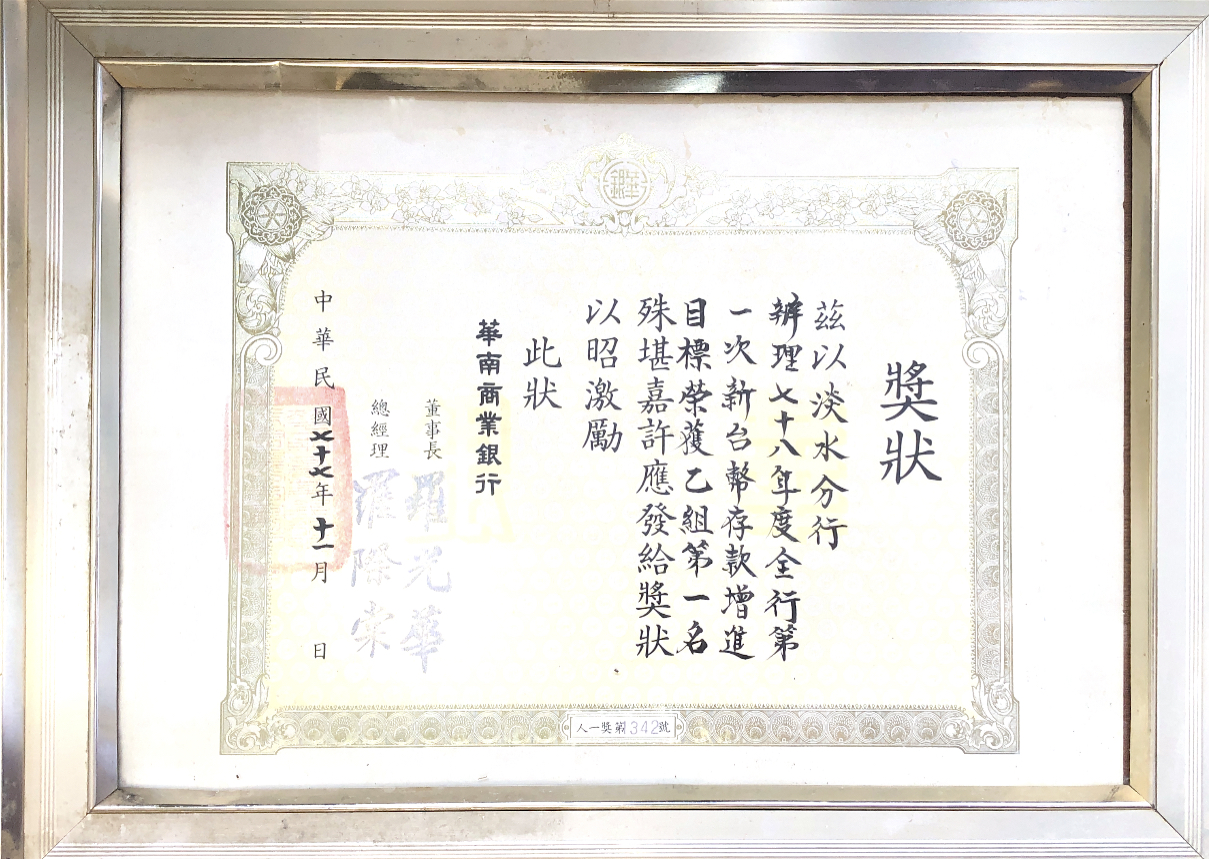 獎狀
茲以淡水分行
辦理七十八年度全行第
一次新台幣存款增進
目標榮獲乙組第一名
殊堪嘉許應發給獎狀
以昭激勵
此狀
華南商業銀行
董事長 羅光華
總經理 羅際棠
中華民國七十七年十一月 日
人一獎第342號